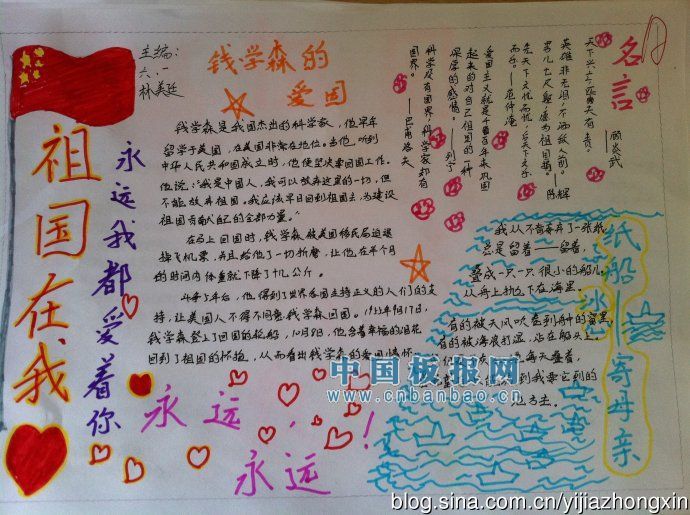 祖国在我
永远我都爱着你
主编:
六.一
钱学森的
爱国
钱学森是我国杰出的科学家,他早年
留学于美国,在美国非常有地位。当他听到
中华人民共和国成立时,他便坚决要回国工作。
他说:“我是中国人,我可以放弃这里的一切,但
不能放弃祖国。我应该早日回到祖国去,为建设
祖国贡献自己的全部力量。”
在马上回国时,钱学森被美国移民局追退
让美国人不得不同意钱学森回国。1955年9月17日,
钱学森登上了回国的轮船,10月8日,他含着幸福的泪花
回到了祖国的怀抱,从而看出钱学森的爱国情怀
永远,
永远!
名言
天下兴亡,匹夫有责。——顾炎武
英雄非无泪,不洒敌人前。
男儿七尺躯,愿为祖国捐。——陈辉
先天下之忧而忧,后天下之乐
而乐。——范仲淹
爱国主义就是千百年来巩固
起来的对自己祖国的一种
深厚的感情。——列宁
科学没有国界,科学家却有
国界。——巴甫洛夫
纸船——寄母亲
冰心
我从不肯妄弃了一张纸,
总是留着——留着,
叠成一只一只很小的船儿,
从舟上抛下在海里。
有的被天风吹卷到舟中的窗里,
有的被海浪打湿,沾在船头上。
中国板报网
www.cnbanbao.cn
blog.sina.com.cn/yijiazhongxin